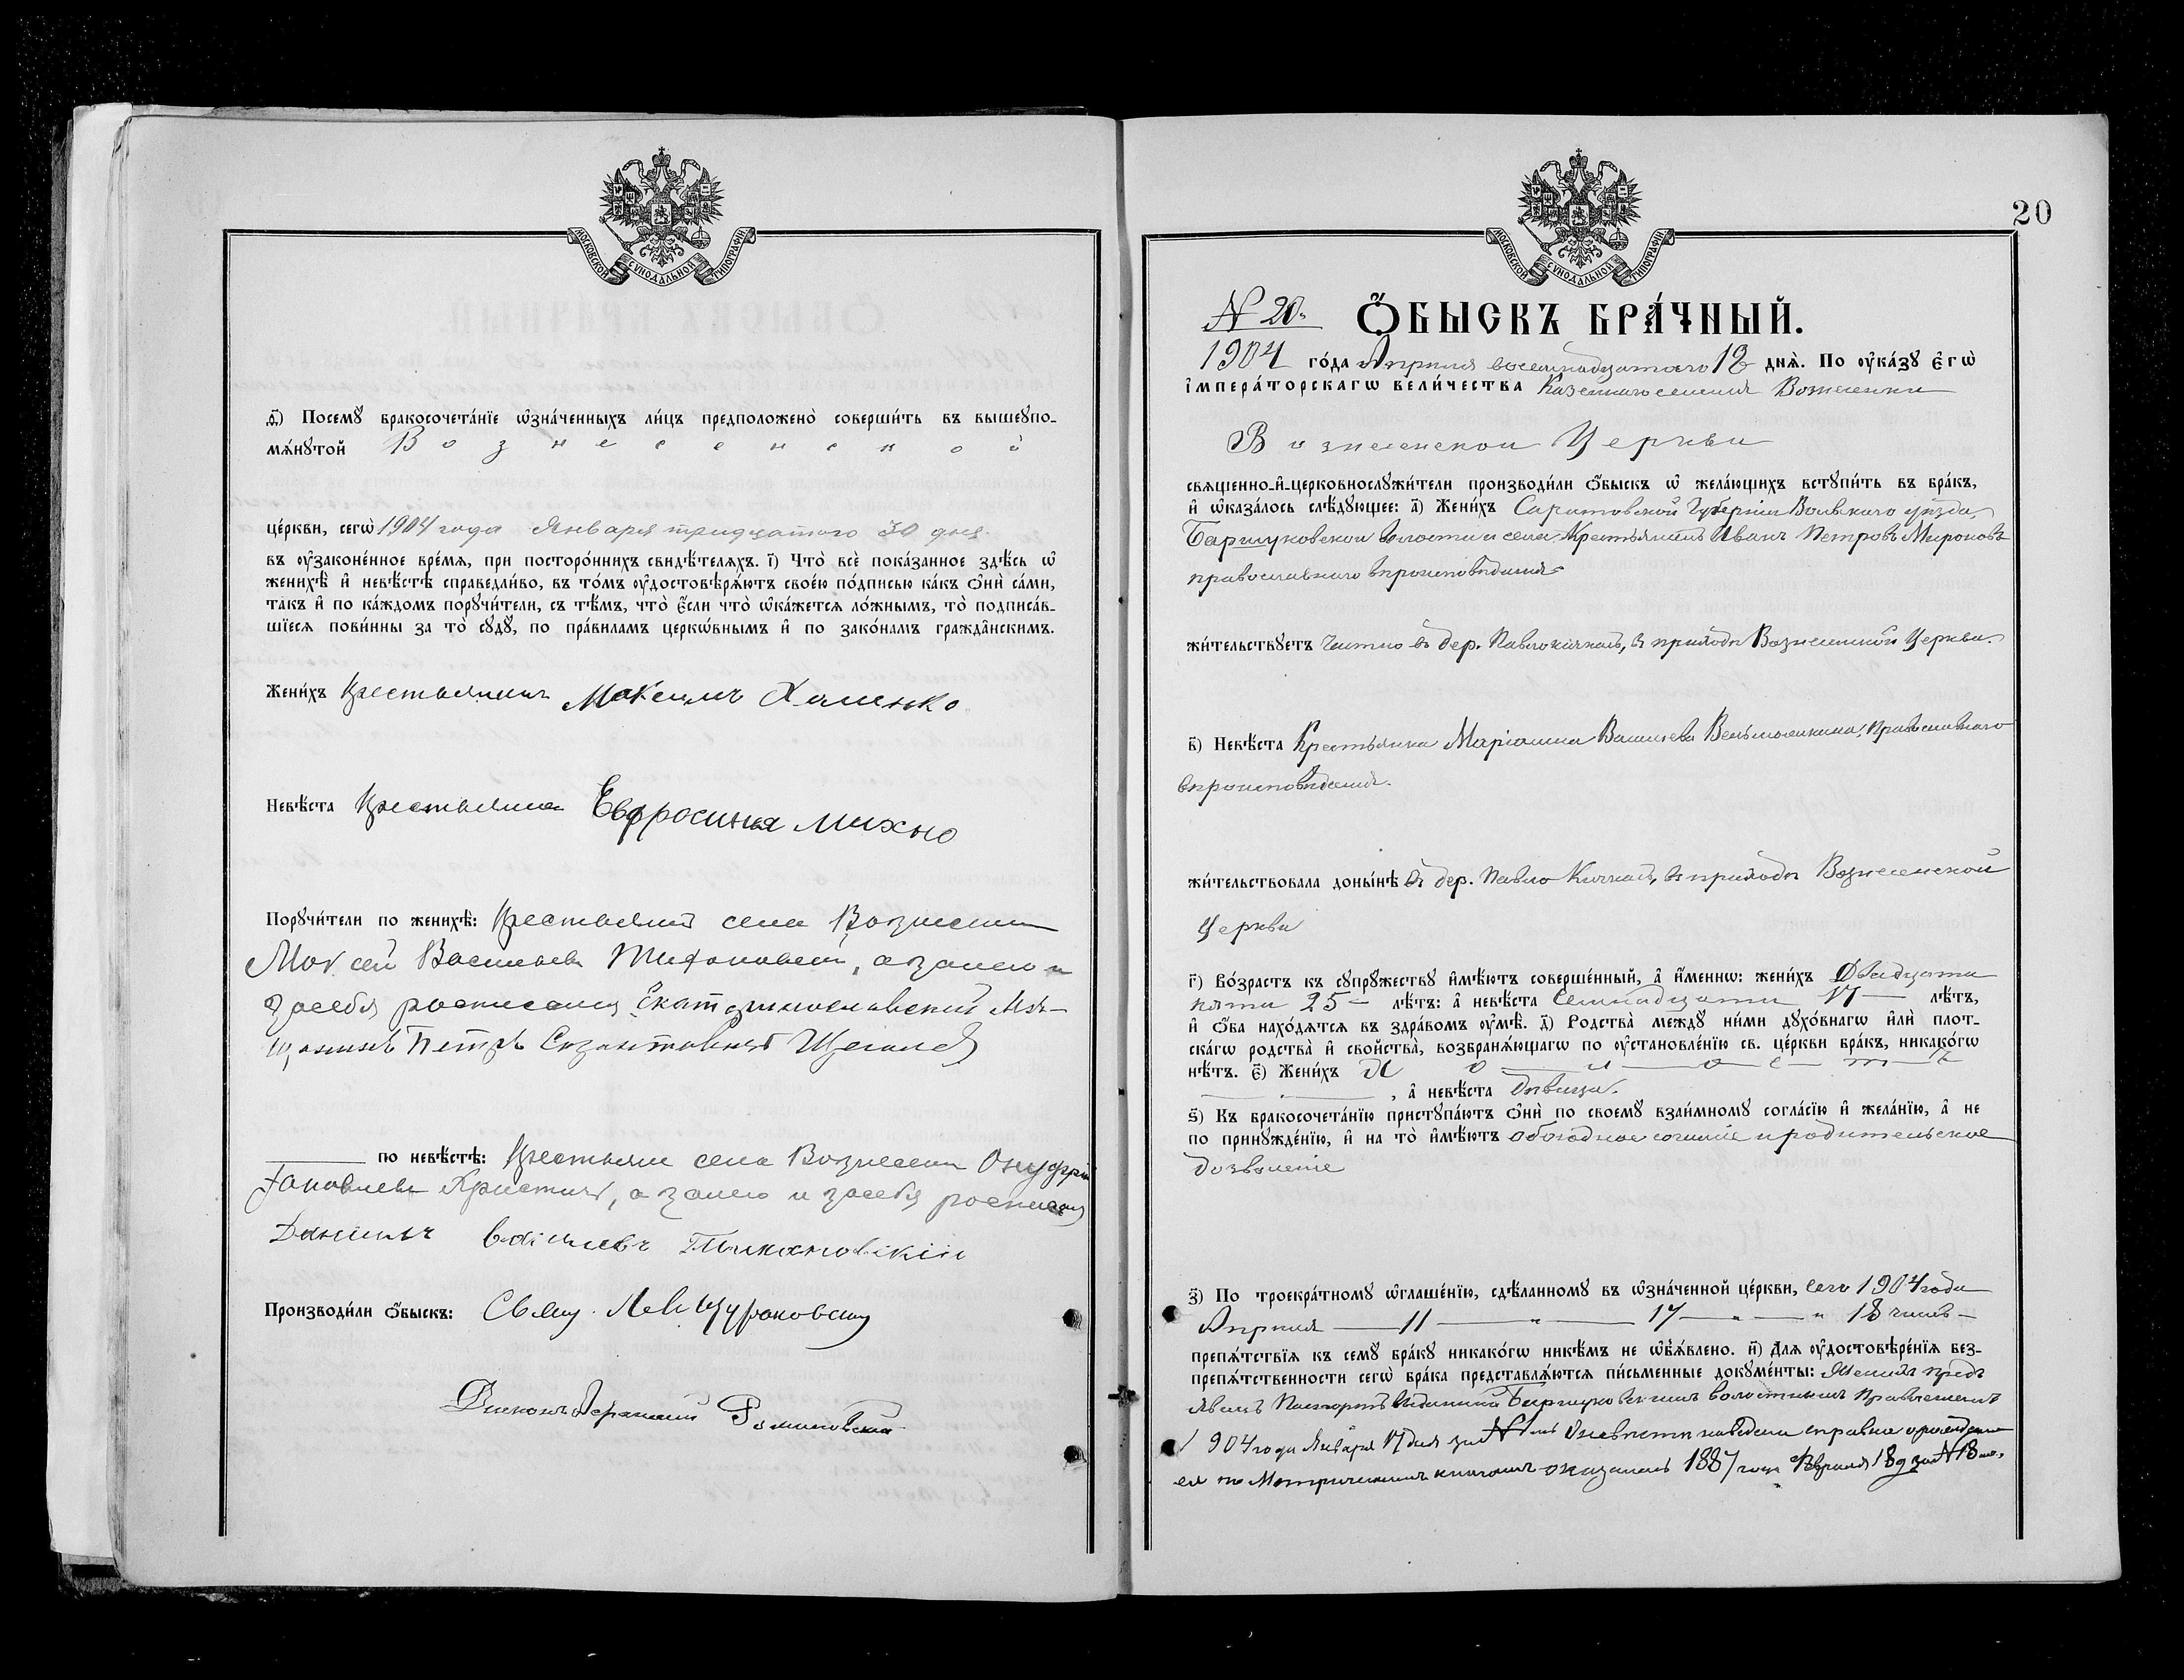 МОСКОВСКОЙ СѴНОДАЛЬНОЙ ТИПОГРАФІИ
д҃і) Посемꙋ бракосочета́нїе ѡ҆зна́ченныхъ ли́цъ предположено̀ соверши́ть въ вышеꙋпо-
мѧ́нꙋтой Вознесенской
це́ркви, сегѡ̀ 1904 года Января тридцатого 30 дня
въ ᲂу҆законе́нное вре́мѧ, при посторо́ннихъ свидѣ́телѧхъ. і҃) Что̀ всѐ пока́занное здѣ́сь ѡ҆
женихѣ̀ и҆ невѣ́стѣ справедли́во, въ то́мъ ᲂу҆достовѣрѧ́ютъ свое́ю по́дписью ка́къ ѻ҆нѝ са́ми,
та́къ и҆ по ка́ждомъ порꙋчи́тели, съ тѣ́мъ, что̀ є҆́сли что̀ ѡ҆ка́жетсѧ ло́жнымъ, то̀ подписа́в-
шїесѧ пови́нны за то̀ сꙋдꙋ̀, по пра́виламъ церкѡ́внымъ и҆ по зако́намъ гражда̑нскимъ.
Жени́хъ Крестьянинъ Максимъ Халенко
Невѣ́ста Крестьянка Евфросинія Михно
Порꙋчи́тели по женихѣ̀: Крестьянин села Вознесенки
Моѵсей Васильевъ Тихановскій, а за него и
за себя росписался Екатеринославский Мѣ-
щанинъ Петръ Щеголев
по невѣ́стѣ: Крестьянин села Вознесенки Онуфрій
Яковлевъ Христич, а за него и за себя росписался
Данiилъ Васiлиевъ Тихановскiй
Производи́ли ѻ҆́быскъ: Свящ. Лев
Діаконъ Романовскій
20
МОСКОВСКОЙ СѴНОДАЛЬНОЙ ТИПОГРАФІИ
N 20. Ѻ҆́БЫСКЪ БРА́ЧНЫЙ.
1904 го́да Апрѣля восемнадцатого 18 днѧ̀. По ᲂу҆ка́зꙋ є҆гѡ̀
і҆мпера́торскагѡ вели́чества Казеннаго селенія Вознесенки
Вознесенской Церкви
свѧщенно-и҆-церковнослꙋжи́тели производи́ли ѻ҆́быскъ ѡ҆ жела́ющихъ встꙋпи́ть въ бра́къ,
и҆ ѡ҆каза́лось слѣ́дꙋющее: а҃) Жени́хъ Саратовской Губерніи Вольскаго уѣзда,
Барнуковской волости и села Крестьянинъ Иванъ Петровъ Мироновъ
православнаго вѣроисповѣданія
жи́тельствꙋетъ въ дер. Павло Кичкасъ, въ приходѣ Вознесенской Церкви.
в҃) Невѣ́ста Крестьянка Маріанна Васильева Вельможкина, Православнаго
вѣроисповѣданія.
жи́тельствовала доны́нѣ въ дер. Павло Кичкасъ, въ приходѣ Вознесенской
Церкви
г҃) Во́зрастъ къ сꙋпрꙋ́жествꙋ и҆мѣ́ютъ соверше́нный, а҆ и҆́менно: жени́хъ Двадцати
пяти 25 – лѣ́тъ: а҆ невѣ́ста Семнадцати 17 – лѣ́тъ,
и҆ ѻ҆́ба нахо́дѧтсѧ въ здра́вомъ ᲂу҆мѣ̀. д҃) Родства̀ междꙋ̀ ни́ми дꙋхо́внагѡ и҆лѝ плот-
ска́гѡ родства̀ и҆ свойства̀, возбранѧ́ющагѡ по ᲂу҆становле́нїю св. це́ркви бра́къ, никако́гѡ
нѣ́тъ. є҃) Жени́хъ Холостъ
, а҆ невѣ́ста Дѣвица.
ѕ҃) Къ бракосочета́нїю пристꙋпа́ютъ ѻ҆нѝ по своемꙋ̀ взаи́мномꙋ согла́сїю и҆ жела́нїю, а҆ не
по принꙋжде́нїю, и҆ на то̀ и҆мѣ́ютъ обоюдное согласіе и родительское
дозволеніе
з҃) По троекра́тномꙋ ѡ҆глаше́нїю, сдѣ́ланномꙋ въ ѡ҆зна́ченной це́ркви, сего 1904 года
Апрѣля — 11 — „ — 17 — „ — „ 18 чиселъ –
препѧ́тствїѧ къ семꙋ̀ бра́кꙋ никако́гѡ никѣ́мъ не ѡ҆б̾ѧ́влено. и҃) Длѧ ᲂу҆достовѣре́нїѧ без-
препѧ́тственности сегѡ̀ бра́ка представлѧ́ютсѧ пи́сьменные докꙋме́нты: Женихъ пред-
явилъ Паспортъ выданный Барнуковскимъ волостнымъ Правленіемъ
1904 года Января 17 дня за № О невѣстѣ наведена справка о рожденіи
ея по Метрическимъ книгамъ оказалось 1887 года Февраля 18 д за N 18